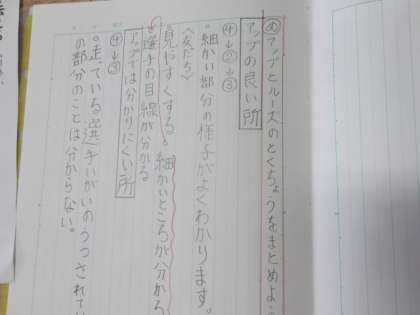 め アップとルーズのとくちょうをまとめよう
アップの良い所
④→②→③
・細かい部分の様子がよくわかります。
〈友だち〉
見やすくする。細かいところが分かる
選手の目線が分かる
アップでは分かりにくい所
④→③
・走っている選手いがいのうつされて
の部分のことは分からない。